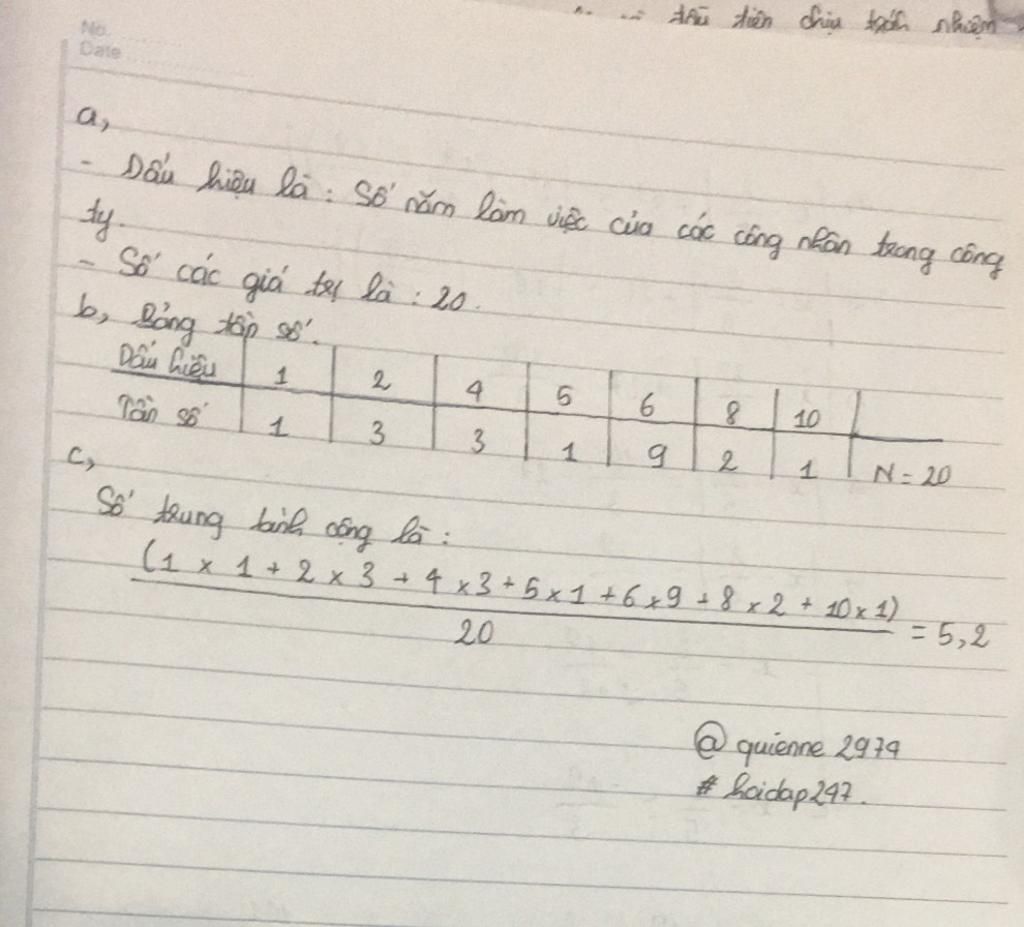 thu tiên chịu trách nhiệm
No.
Date
a,
- Dấu hiệu là : Số năm làm việc của các công nhân trong công
ty.
- Số các giá trị là : 20.
b, Bảng tần số.
Dấu hiệu 1 2 4 5 6 8 10
Tần số 1 3 3 1 9 2 1 N = 20
c,
Số trung bình cộng là :
(1 x 1 + 2 x 3 + 4 x 3 + 5 x 1 + 6 x 9 + 8 x 2 + 10 x 1)
20 = 5,2
@ quienne 2979
# hoidap247.